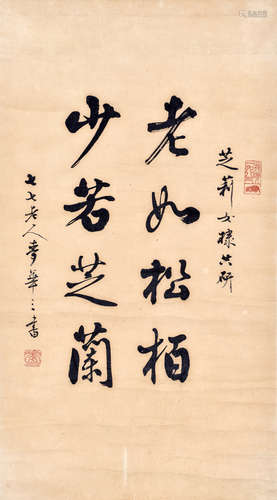 芝莉女棣共研
老如松柏
少若芝蘭
七七老人麥華三書